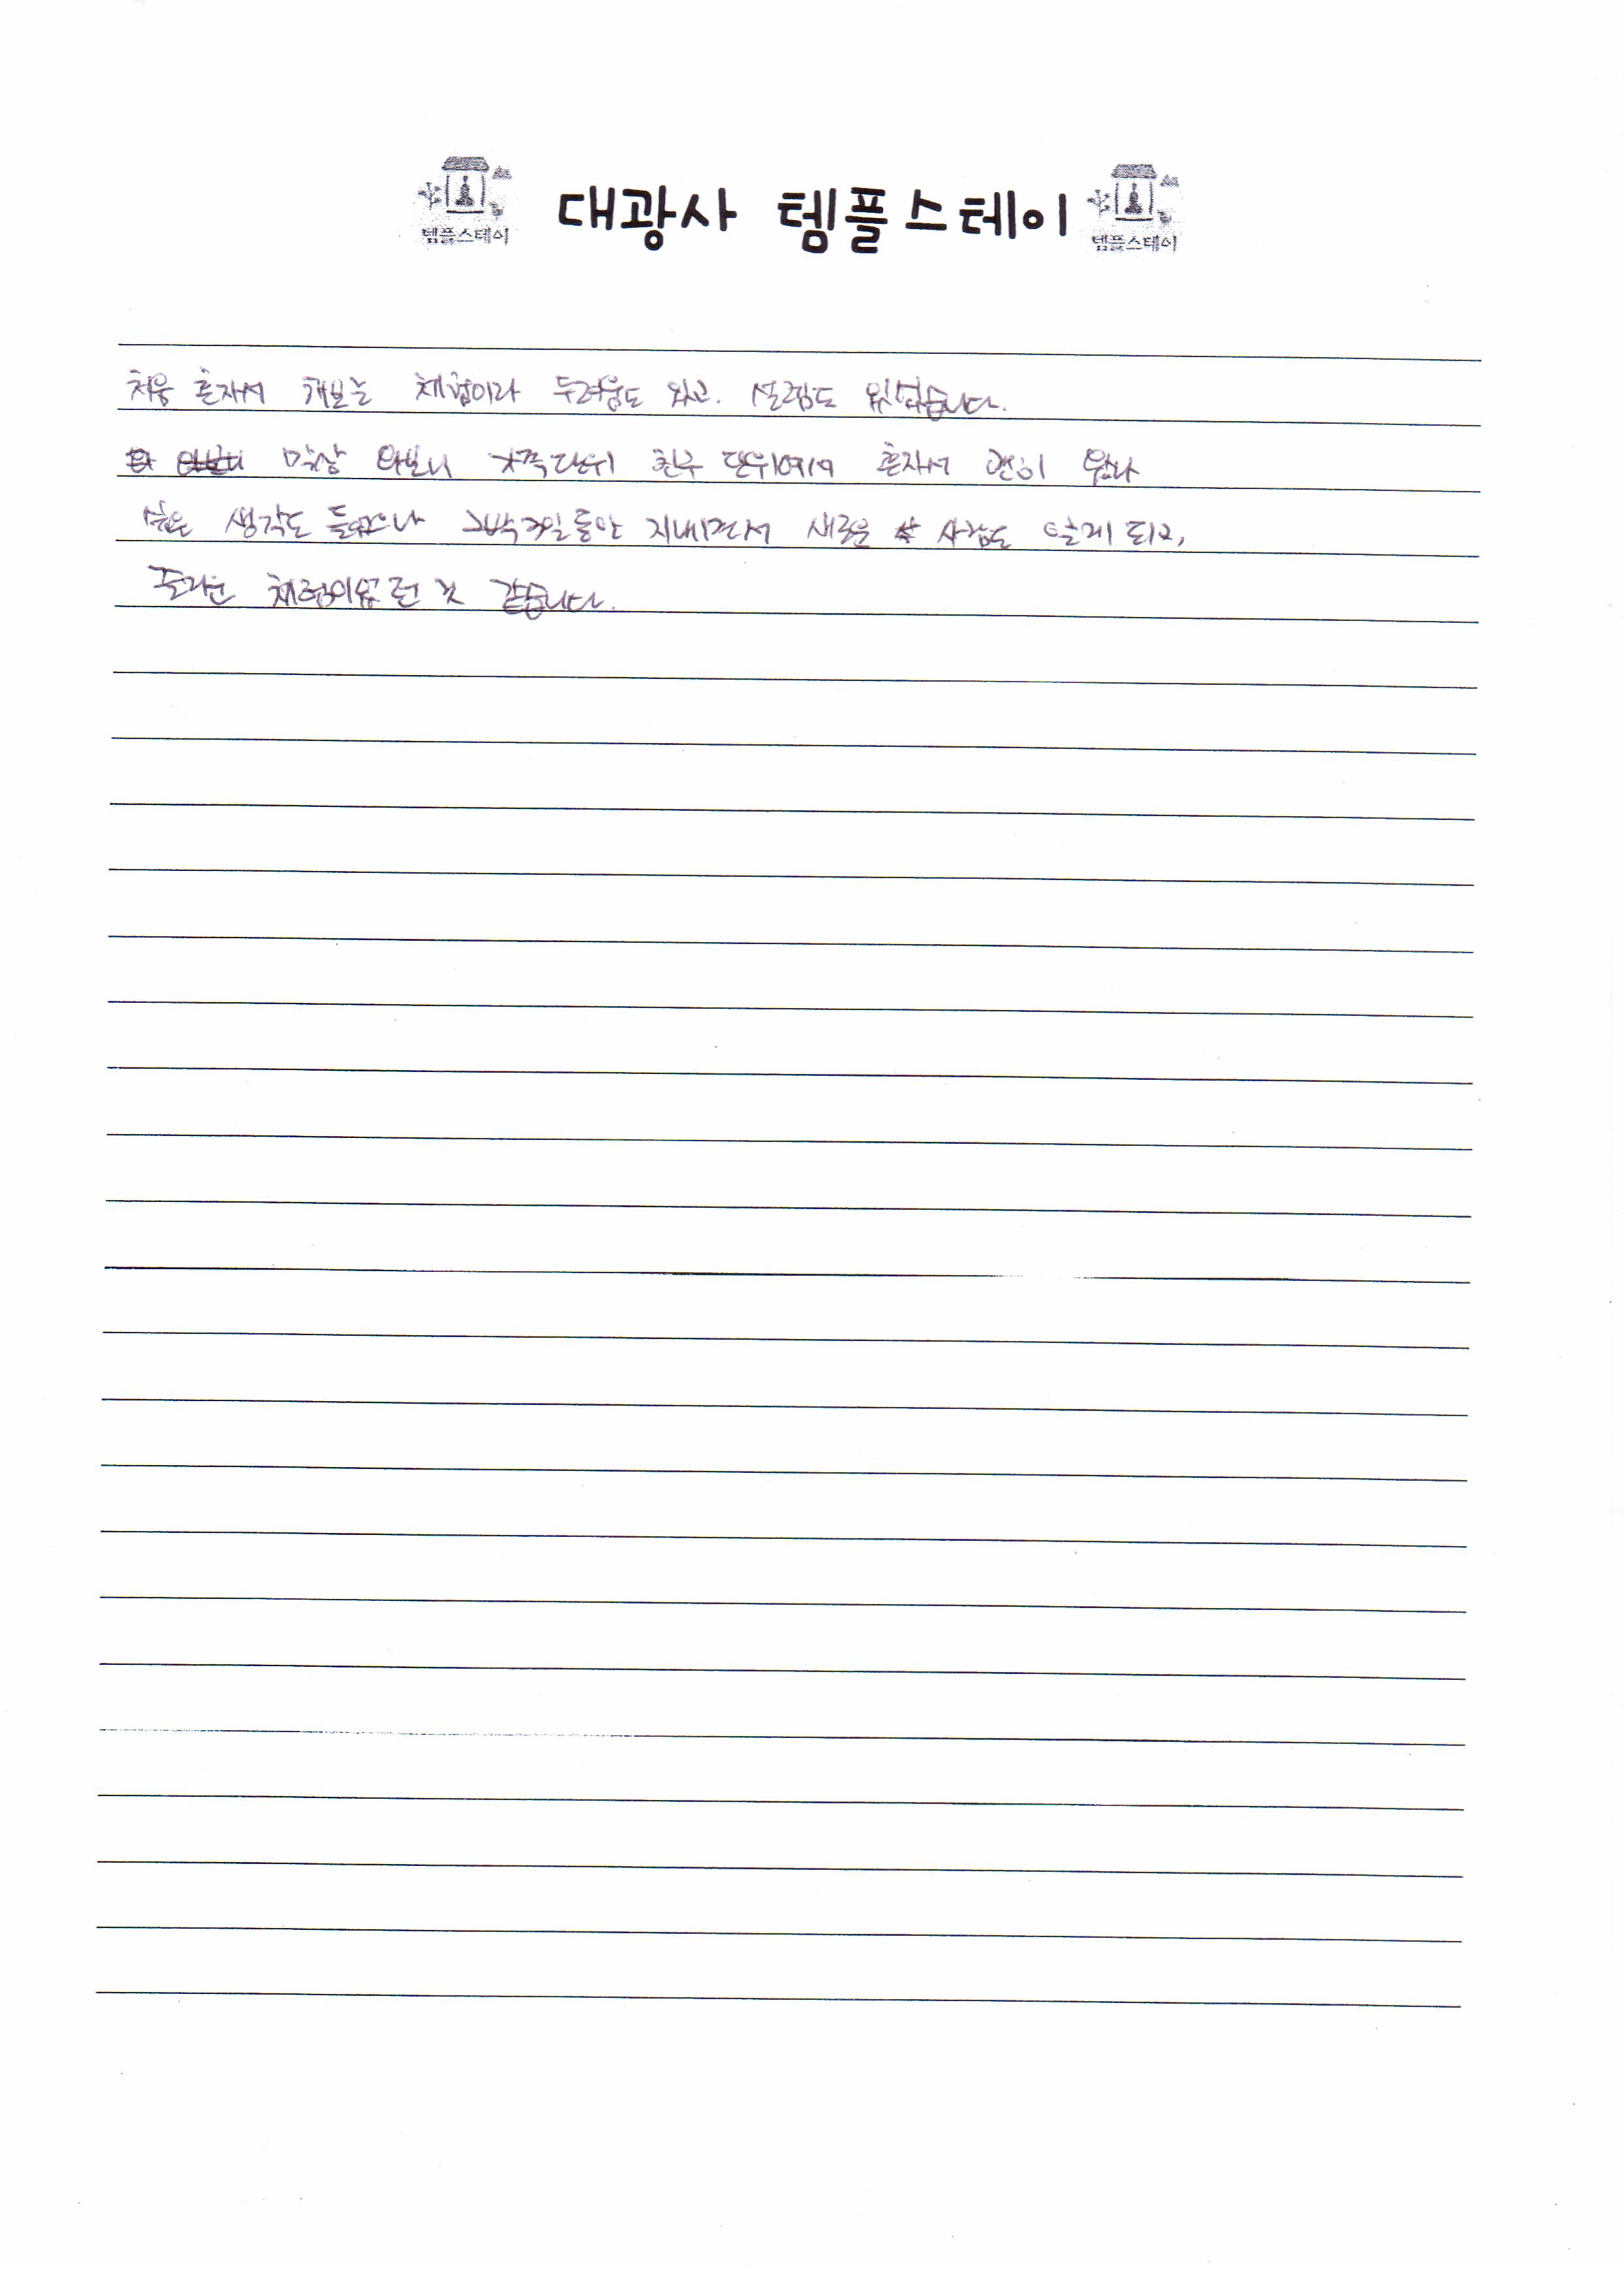 템플스테이 대광사 템플스테이 템플스테이
처음 혼자서 해보는 체험이라 두려움도 있고. 설렘도 있었습니다.
막상 와보니 가족단위 친구 단위여서 혼자서 괜히 왔나
싶은 생각도 들었으나 2박3일동안 지내면서 새로운 사람도 알게 되고,
즐거운 체험이었던 것 같습니다.